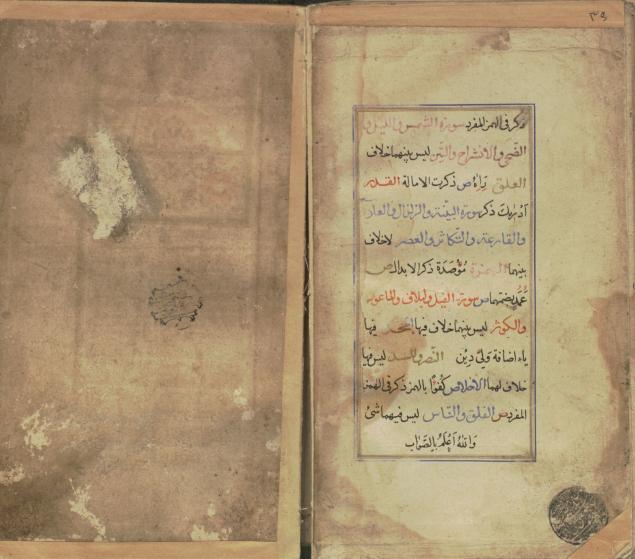 ٣٩
ذكر فى الهمز المفرد سورة الشمس والليل و
الضحى والانشراح والتين ليس بينهما خلاف
العلق رَءَاهُ ص ذكرت الامالة القدر
أدريك ذكر سورة البينة والزلزال والعاد
والقارعة والتكاثر والعصر لاخلاف
بينهما الهمزة مُؤْصَدَة ذكر الابدال ص
عَمَدٍ بضمتهما ص سورة الفيل ولايلاف والماعون
والكوثر ليس بينهما خلاف فيها الجحد فيها
ياء اضافة وَلِىَ دِيْنِ النصر والمسد ليس فيها
خلاف لهما الاخلاص كُفُوًا بالهمز ذكر فى الهمز
المفرد ص الفلق والناس ليس فيهما شئ
وَاللهُ اَعْلَمُ بِالصَّوَابِ